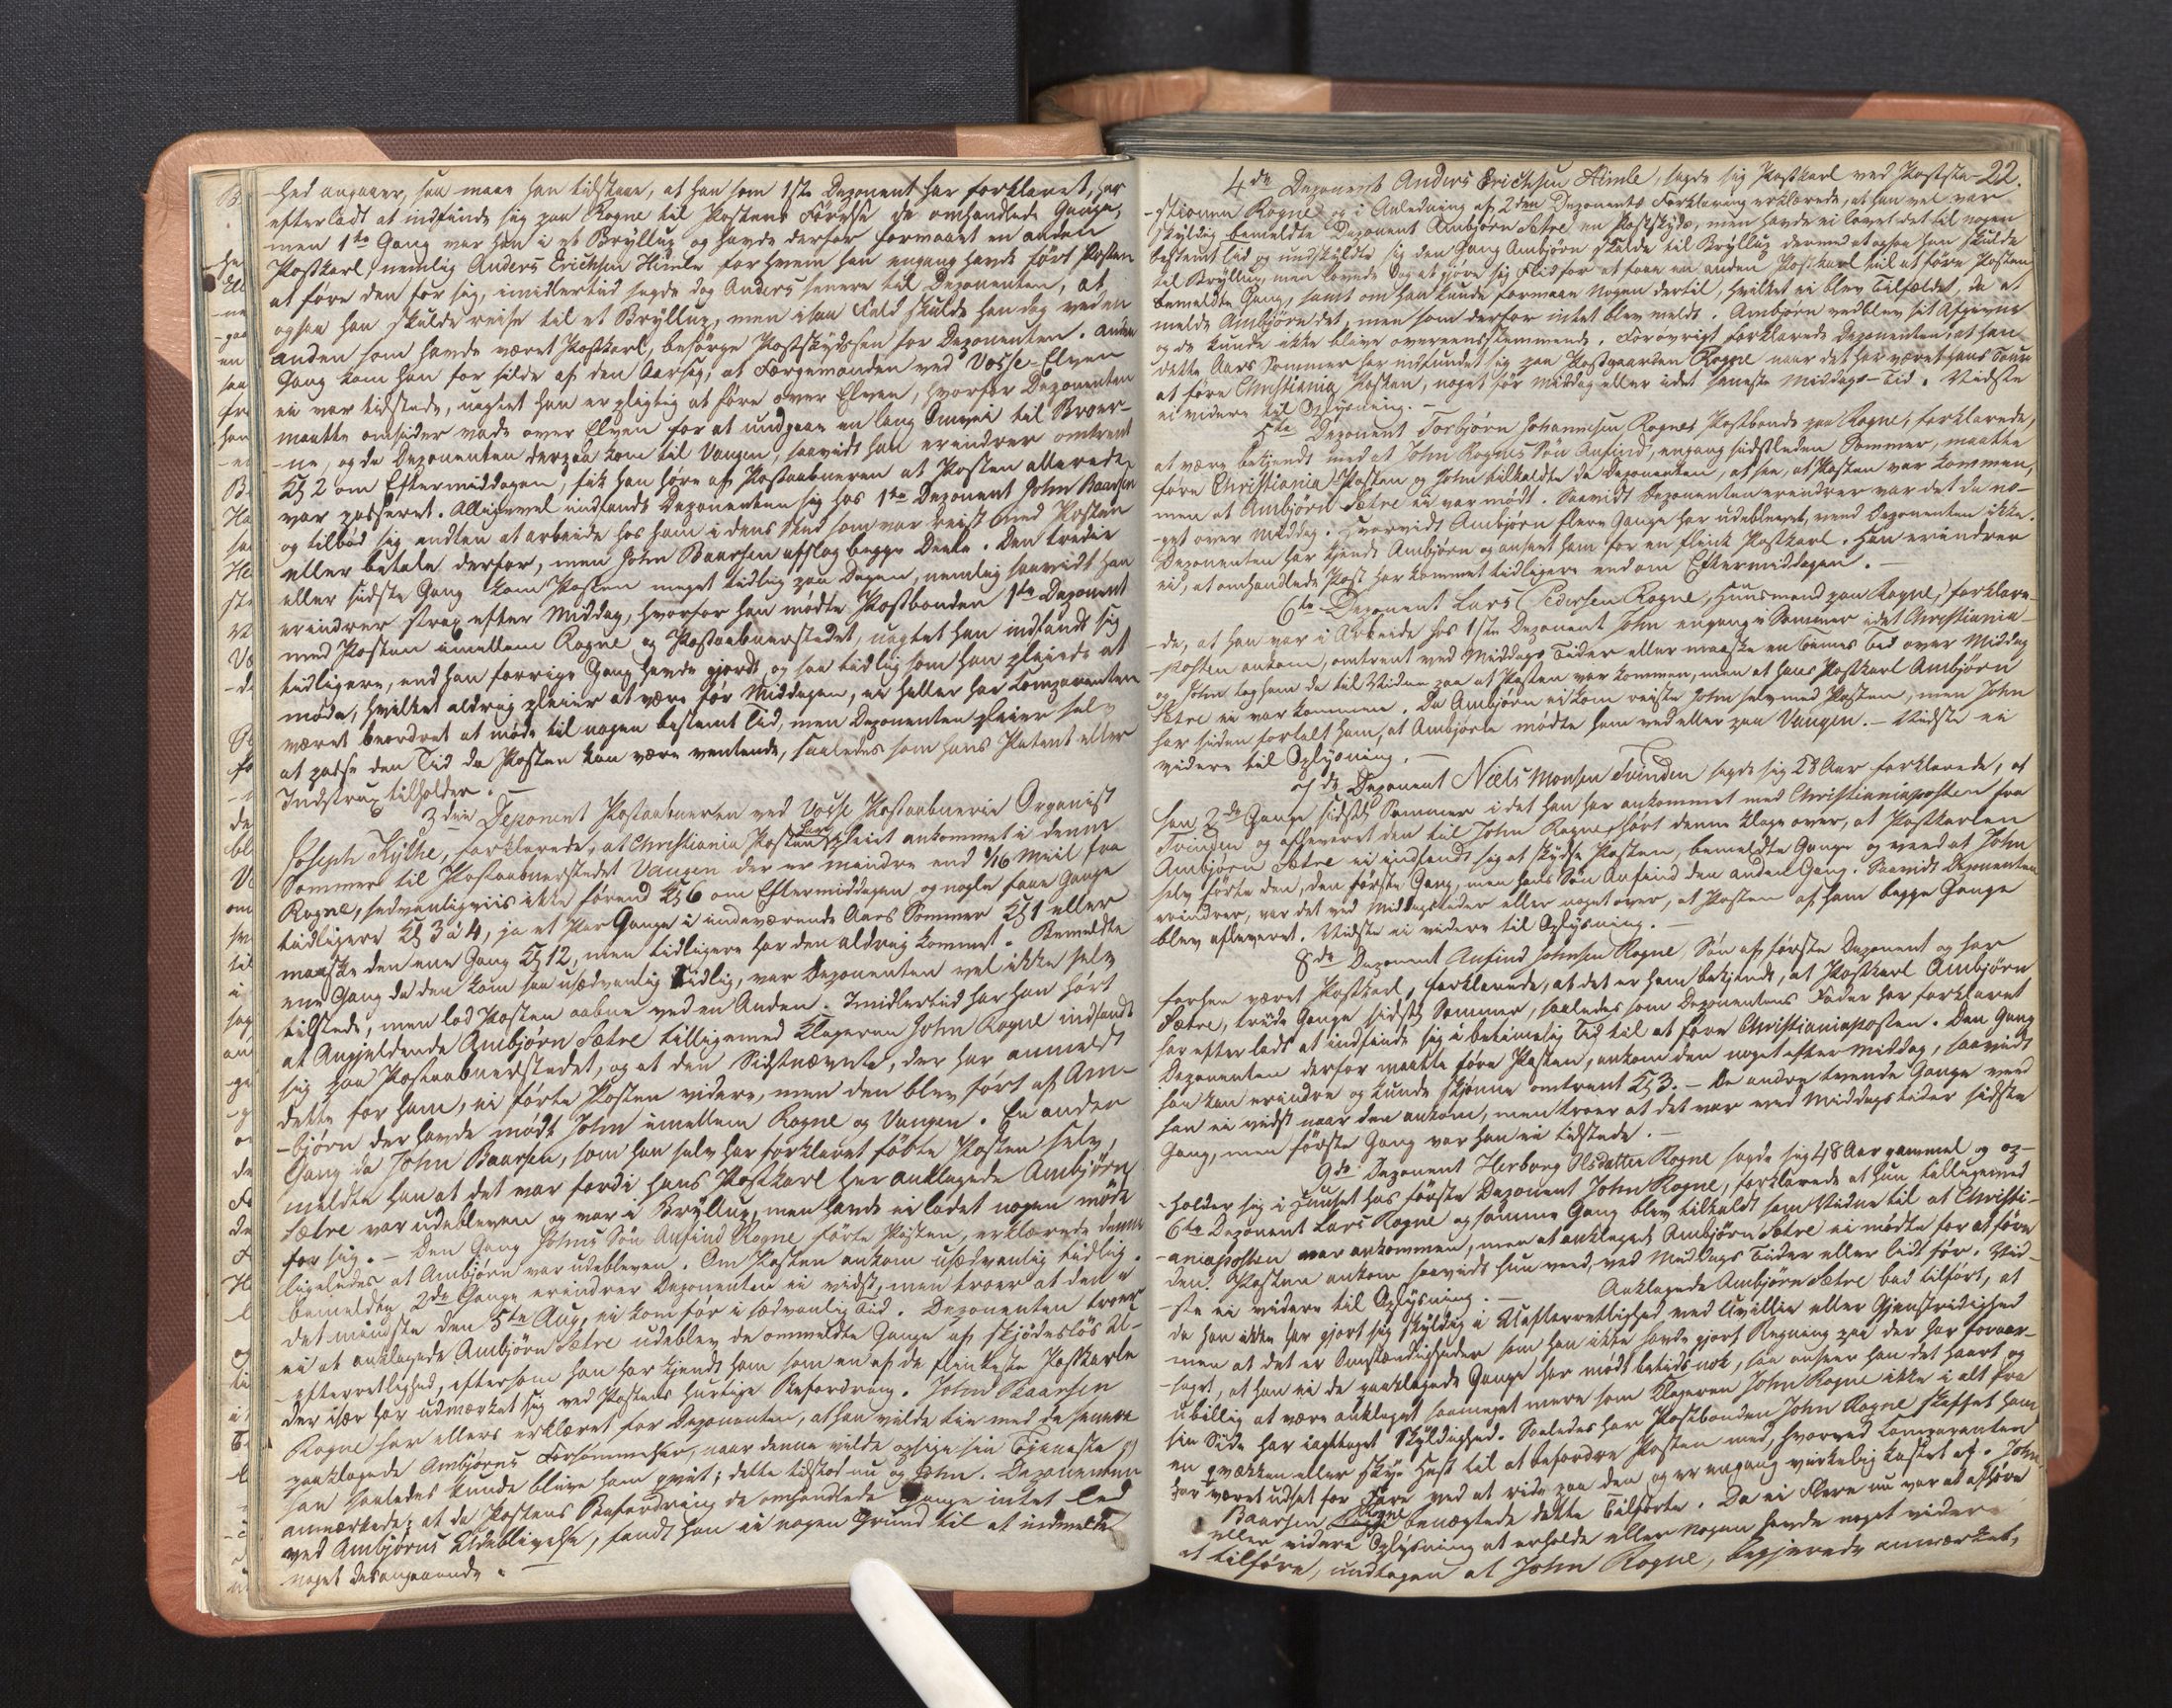 hed angaaer, saa maae han tilstaae, at han som 1ste Deponent har forklaret, har
efterladt at indfinde sig paa Rogne til Postens Förelse de omhandlede Gange,
men 1ste Gang var han i et Bryllup og havde derfor formaaet en anden
Postkarl, nemlig Anders Erichsen Himle for hvem han engang havde fört Posten
at före den for sig, imidlertid sagde dog Anders senere til Deponenten, at
ogsaa han skulde reise til et Bryllup, men i saa Fald skulde han dog ved en
anden som havde været Postkarl, besörge Postskydsen for Deponenten. anden
Gang kom han for silde af den Aarsag, at Færgemanden ved Vosse-Elven
ei var tilstede, uagtet han er pligtig at före over Elven, hvorfor Deponenten
maatte omsider vade over Elven for at undgaae en lang Omvei til Broer-
-ne, og da Deponenten derpaa kom til Vangen, saavidt han erindrer omtrent
Kl 2 om Eftermiddagen, fik han höre af Postaabneren at Posten allerede
var passeret. Alligevel indfandt Deponenten sig hos 1ste Deponent John Baarsen
og tilbød sig endten at arbeide hos ham i dens Sted som var reist med Posten
eller betale derfor, men John Baarsen afslog begge Deele. Den tredie
eller sidste Gang kom Posten meget tidlig paa Dagen, nemlig saavidt han
erindrer strax efter Middag, hvorfor han mödte Postbonden 1ste Deponent
med Posten imellem Rogne og Postaabnerstedet, uagtet han indfandt sig
tidligere, end han forrige Gang havde gjordt og saa tidlig som han pleiede at
möde, hvilket aldrig pleier at være för Middagen, ei heller har Comparenten
været beordret at möde til nogen bestemt Tid, men Deponenten pleier selv
at passe den Tid da Posten kan være ventende, saaledes som hans Patent eller
Instrux tilholder. —
3die Deponent Postaabneren ved Vosse Postaabnerie Organist
Joseph Kythe, forklarede, at Christiania Posten har pleiet ankommet i denne
Sommer til Postaabnerstedet Vangen der er mindre end 1/16 Miil fra
Rogne, sedvanligviis ikke förend Kl 6 om Eftermiddagen og nogle faae Gange
tidligere Kl 3 à 4, ja et Par Gange i indeværende Aars Sommer Kl 1 eller
maaske den ene Gang Kl 12, men tidligere har den aldrig kommet. Bemeldte
ene Gang da den kom saa usædvanlig tidlig, var Deponenten vel ikke selv
tilstede, men lod Posten aabne ved en Anden. Imidlertid har han hört
at Angjeldende Ambjörn Sætre tilligemed Klageren John Rogne indfandt
sig paa Postaabnerstedet, og at den Sidstnævnte, der har anmeldt
dette for ham, ei förte Posten videre, men den blev fört af Am-
-björn der havde mödt John imellem Rogne og Vangen. En anden
Gang da John Baarsen, som han selv har forklaret förte Posten selv,
meldte han at det var fordi hans Postkarl her anklagede Ambjörn
Sætre var udebleven og var i Bryllup, men havde ei ladet nogen möde
for sig. — Den Gang Johns Sön Anfind Rogne förte Posten, erklærede denne
ligeledes at Ambjörn var udebleven. Om Posten ankom usædvanlig tidlig
bemeldte 2de Gange erindrer Deponenten ei vidst, men troer at den i
det mindste den 5te Aug, ei kom för i sædvanlig Tid. Deponenten troer
ei at anklagede Ambjörn Sætre udeblev de ommeldte Gange af skjödeslös U-
-efterretlighed, eftersom han har kjendt ham som en af de flinkeste Postkarle
der især har udmærket sig ved Postens hurtige Befordring. John Baarsen
Rogne har ellers erklæret for Deponenten, at han vilde tie med de senere
paaklagede Ambjörns Forsömmelser, naar denne vilde opsige sin Tjeneste,
han saaledes kunde blive ham qvit; dette tilstod nu og John. Deponenten
anmærkede; at da Postens Befordring de omhandlede Gange intet led
ved Ambjörns Udeblivelse, fandt han ei nogen Grund til at indmelde
noget desangaaende. —
22.
4de Deponent Anders Erichsen Himle, sagde sig Postkarl ved Poststa-
-stionen Rogne, og i Anledning af 2den Deponents Forklaring erklærede, at han vel var
skyldig bemeldte Deponent Ambjörn Sætre en Postskyds, men havde ei lovet det til nogen
bestemt Tid og undskyldte sig den Gang Ambjörn skulde til Bryllup dermed at ogsaa han skulde
til Bryllup, men lovede dog at gjöre sig Flid for at faae en anden Postkarl til at före Posten
bemeldte Gang, samt om han kunde formaae Nogen dertil, hvilket ei blev Tilfældet, da at
melde Ambjörn det, men som derfor intet blev meldt. Ambjörn vedblev sit Afgivne
og de kunde ikke blive overeensstemmende. Forövrigt forklarede Deponenten at han
dette Aars Sommer har indfundet sig paa Postgaarden Rogne naar det har været hans Tour
at före Christiania Posten, noget för Middag eller idet seneste Middags-Tid. Vidste
ei videre til Oplysning. —
5te Deponent Torbjörn Johannesen Rogne, Postbonde paa Rogne, forklarede,
at være bekjendt med at John Rognes Sön Anfind, engang sidstleden Sommer, maatte
före Christiania-Posten og John tilkaldte da Deponenten, at see, at Posten var kommen,
men at Ambjörn Sætre ei var mödt. Saavidt Deponenten erindrer var det da no-
-get over Middag. Hvorvidt Ambjörn flere Gange har udeblevet, veed Deponenten ikke.
Deponenten har kjendt Ambjörn og anseet ham for en flink Postkarl. Han erindrer
ei, at omhandlede Post har kommet tidligere end om Eftermiddagen. —
6te Deponent Lars Pedersen Rogne, Huusmand paa Rogne, forklare-
-de, at han var i Arbeide hos 1ste Deponent John engang i Sommer idet Christiania-
-Posten ankom, omtrent ved Middags Tider eller maaske en Times Tid over Middag
og John tog ham da til Vidne paa at Posten var kommen, men at hans Postkarl Ambjörn
Sætre ei var kommen. Da Ambjörn ei kom reiste John selv med Posten, men John
har siden fortalt ham, at Ambjörn mödte ham ved eller paa Vangen. — Vidste ei
videre til Oplysning. —
7de Deponent Niels Monsen Tvinden sagde sig 28 Aar forklarede, at
han 2de Gange sidstl Sommer i det han har ankommet med Christianiaposten fra
Tvinden og afleveret den til John Rogne, hört denne klage over, at Postkarlen
Ambjörn Sætre ei indfandt sig at skydse Posten, bemeldte Gange og veed at John
selv förte den, den förste Gang, men hans Sön Anfind den anden Gang. Saavidt Deponenten
erindrer, var det ved Middagstider eller noget over, at Posten af ham begge Gange
blev afleveret. Vidste ei videre til Oplysning. —
8de Deponent Anfind Johnsen Rogne, Sön af förste Deponent og har
forhen været Postkarl, forklarede, at det er ham bekjendt, at Postkarl Ambjörn
Sætre, trede Gange sidstl Sommer, saaledes som Deponentens Fader har forklaret
har efterladt at indfinde sig i betimelig Tid til at före Christianiaposten. Den Gang
Deponenten derfor maatte före Posten, ankom den noget efter Middag, saavidt
han kan erindre og kunde skjönne omtrent Kl 3. — De andre tvende Gange veed
han ei vidst naar den ankom, men troer at det var ved Middagstider sidste
Gang, men förste Gang var han ei tilstede. —
9de Deponent Herborg Olsdatter Rogne sagde sig 48 Aar gammel og op-
-holder sig i Huuset hos förste Deponent John Rogne, forklarede at hun tilligemed
6te Deponent Lars Rogne og samme Gang blev tilkaldt som Vidne til at Christi-
-aniaposten var ankommen, men at anklagede Ambjörn Sætre ei mödte for at före
den. Posten ankom saavidt hun veed, ved Middags Tider eller lidt för. Vid-
-ste ei videre til Oplysning. — Anklagede Ambjörn Sætre bad tilfört, at
da han ikke har gjort sig skyldig i Uefterrettlighed ved Uvillie eller Gjenstridighed
men at det er Omstændigheder som han ikke havde gjort Regning paa der har foraar-
-saget, at han ei de paaklagede Gange har mödt betids nok, saa anseer han det haart og
ubillig at være anklaget saameget mere som Klageren John Rogne ikke i alt fra
sin Side har iagttaget Skyldighed. Saaledes har Postbonden John Rogne skaffet ham
en qvækken eller skye Hest til at befordre Posten med, hvorved Comparenten
har været udsat for Fare ved at ride paa den og er engang virkelig kastet af. John
Baarsen Rogne benægtede dette Tilförte. Da ei Flere nu var at afhöre
eller videre Oplysning at erholde eller Nogen havde noget videre
at tilföre, undtagen at John Rogne, begjerede anmærket,